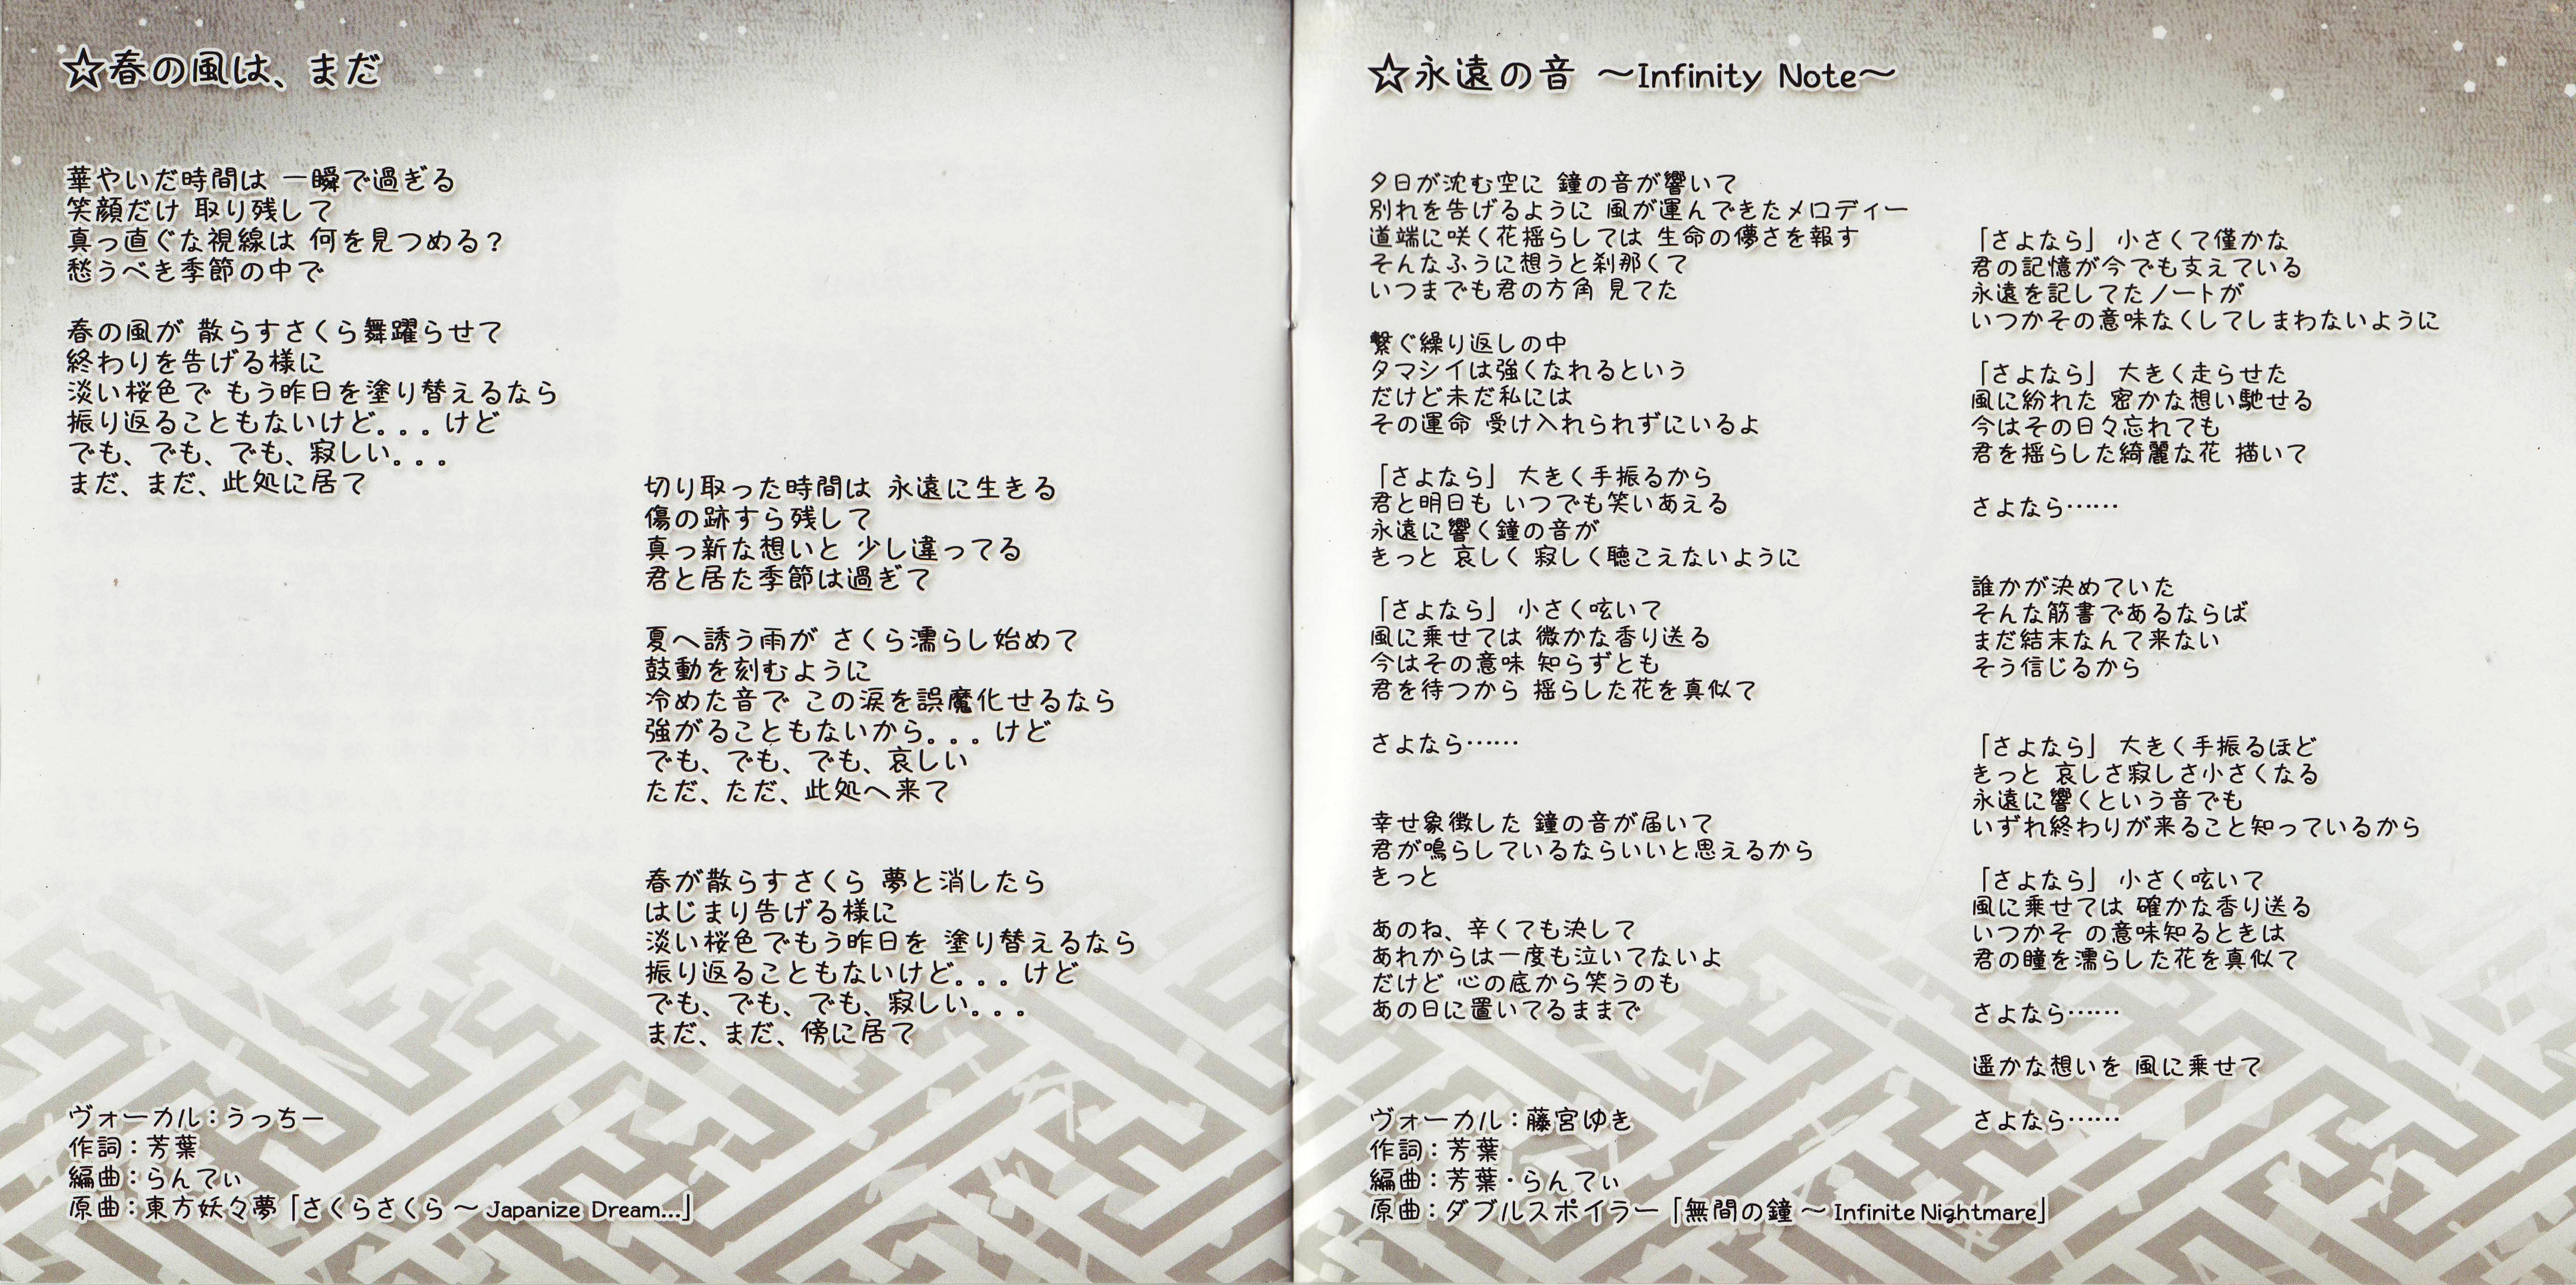 ☆春の風は、まだ
華やいだ時間は 一瞬で過ぎる
笑顔だけ 取り残して
真っ直ぐな視線は 何を見つめる？
愁うべき季節の中で
春の風が 散らすさくら舞躍らせて
終わりを告げる様に
淡い桜色で もう昨日を塗り替えるなら
振り返ることもないけど。。。けど
でも、でも、でも、寂しい。。。
まだ、まだ、此処に居て
切り取った時間は 永遠に生きる
傷の跡すら残して
真っ新な想いと 少し違ってる
君と居た季節は過ぎて
夏へ誘う雨が さくら濡らし始めて
鼓動を刻むように
冷めた音で この涙を誤魔化せるなら
強がることもないから。。。けど
でも、でも、でも、哀しい
ただ、ただ、此処へ来て
春が散らすさくら 夢と消したら
はじまり告げる様に
淡い桜色でもう昨日を 塗り替えるなら
振り返ることもないけど。。。けど
でも、でも、でも、寂しい。。。
まだ、まだ、傍に居て
ヴォーカル：うっちー
作詞：芳葉
編曲：らんてぃ
原曲：東方妖々夢「さくらさくら ～ Japanize Dream...」
☆永遠の音 ～Infinity Note～
夕日が沈む空に 鐘の音が響いて
別れを告げるように 風が運んできたメロディー
道端に咲く花揺らしては 生命の儚さを報す
そんなふうに想うと刹那くて
いつまでも君の方角 見てた
繋ぐ繰り返しの中
タマシイは強くなれるという
だけど未だ私には
その運命 受け入れられずにいるよ
「さよなら」 大きく手振るから
君と明日も いつでも笑いあえる
永遠に響く鐘の音が
きっと 哀しく 寂しく聴こえないように
「さよなら」 小さく呟いて
風に乗せては 微かな香り送る
今はその意味 知らずとも
君を待つから 揺らした花を真似て
さよなら……
幸せ象徴した 鐘の音が届いて
君が鳴らしているならいいと思えるから
きっと
あのね、辛くても決して
あれからは一度も泣いてないよ
だけど 心の底から笑うのも
あの日に置いてるままで
「さよなら」 小さくて僅かな
君の記憶が今でも支えている
永遠を記してたノートが
いつかその意味なくしてしまわないように
「さよなら」 大きく走らせた
風に紛れた 密かな想い馳せる
今はその日々忘れても
君を揺らした綺麗な花 描いて
さよなら……
誰かが決めていた
そんな筋書であるならば
まだ結末なんて来ない
そう信じるから
「さよなら」 大きく手振るほど
きっと 哀しさ寂しさ小さくなる
永遠に響くという音でも
いずれ終わりが来ること知っているから
「さよなら」 小さく呟いて
風に乗せては 確かな香り送る
いつかそ の意味知るときは
君の瞳を濡らした花を真似て
さよなら……
遥かな想いを 風に乗せて
さよなら……
ヴォーカル：藤宮ゆき
作詞：芳葉
編曲：芳葉・らんてぃ
原曲：ダブルスポイラー「無間の鐘 ～ Infinite Nightmare」